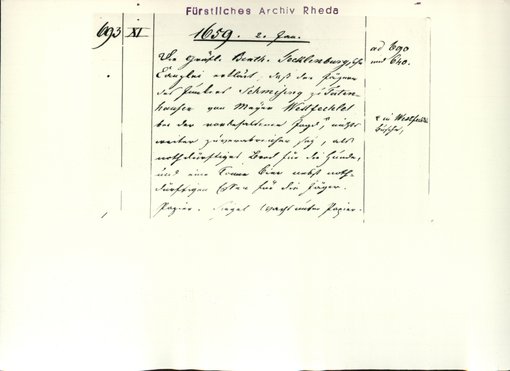 Fürstliches Archiv Rheda
693 XI 1659. 2. Jan.
Die Gräfl. Benth. Tecklenburgische
Canzlei erklärt, daß der Jäger
des Junkers Schmising zu Taten-
hausen von Meyer Westfechtel
bei der vorbehaltenen Jagd, nichts
weiter zu verabreichen sei, als
nothdürftiges Brod für die Hunde,
und eine Tonne Bier nebst noth-
dürftigen Essen für die Jäger.
Papier. Siegel Wachs unter Papier.
ad 690
und 640.
* in Westfech